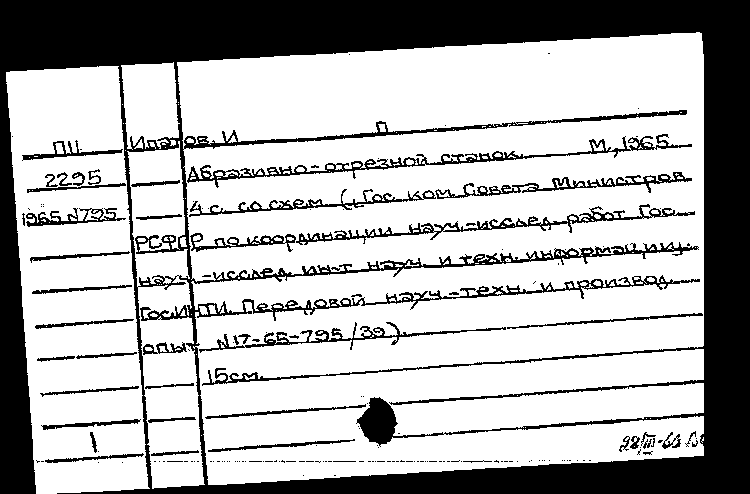 П11 Ипатов, И П
2295 Абразивно-отрезной станок. М., 1965.
1965 №795 4 с. со схем. (Гос. ком. Совета Министров
РСФСР по координации науч.-исслед. работ. Гос.
науч.-исслед. ин-т науч. и техн. информации.
ГосИНТИ. Передовой науч.-техн. и производ.
опыт №17-65-795/39).
15см.
1
28/III-66